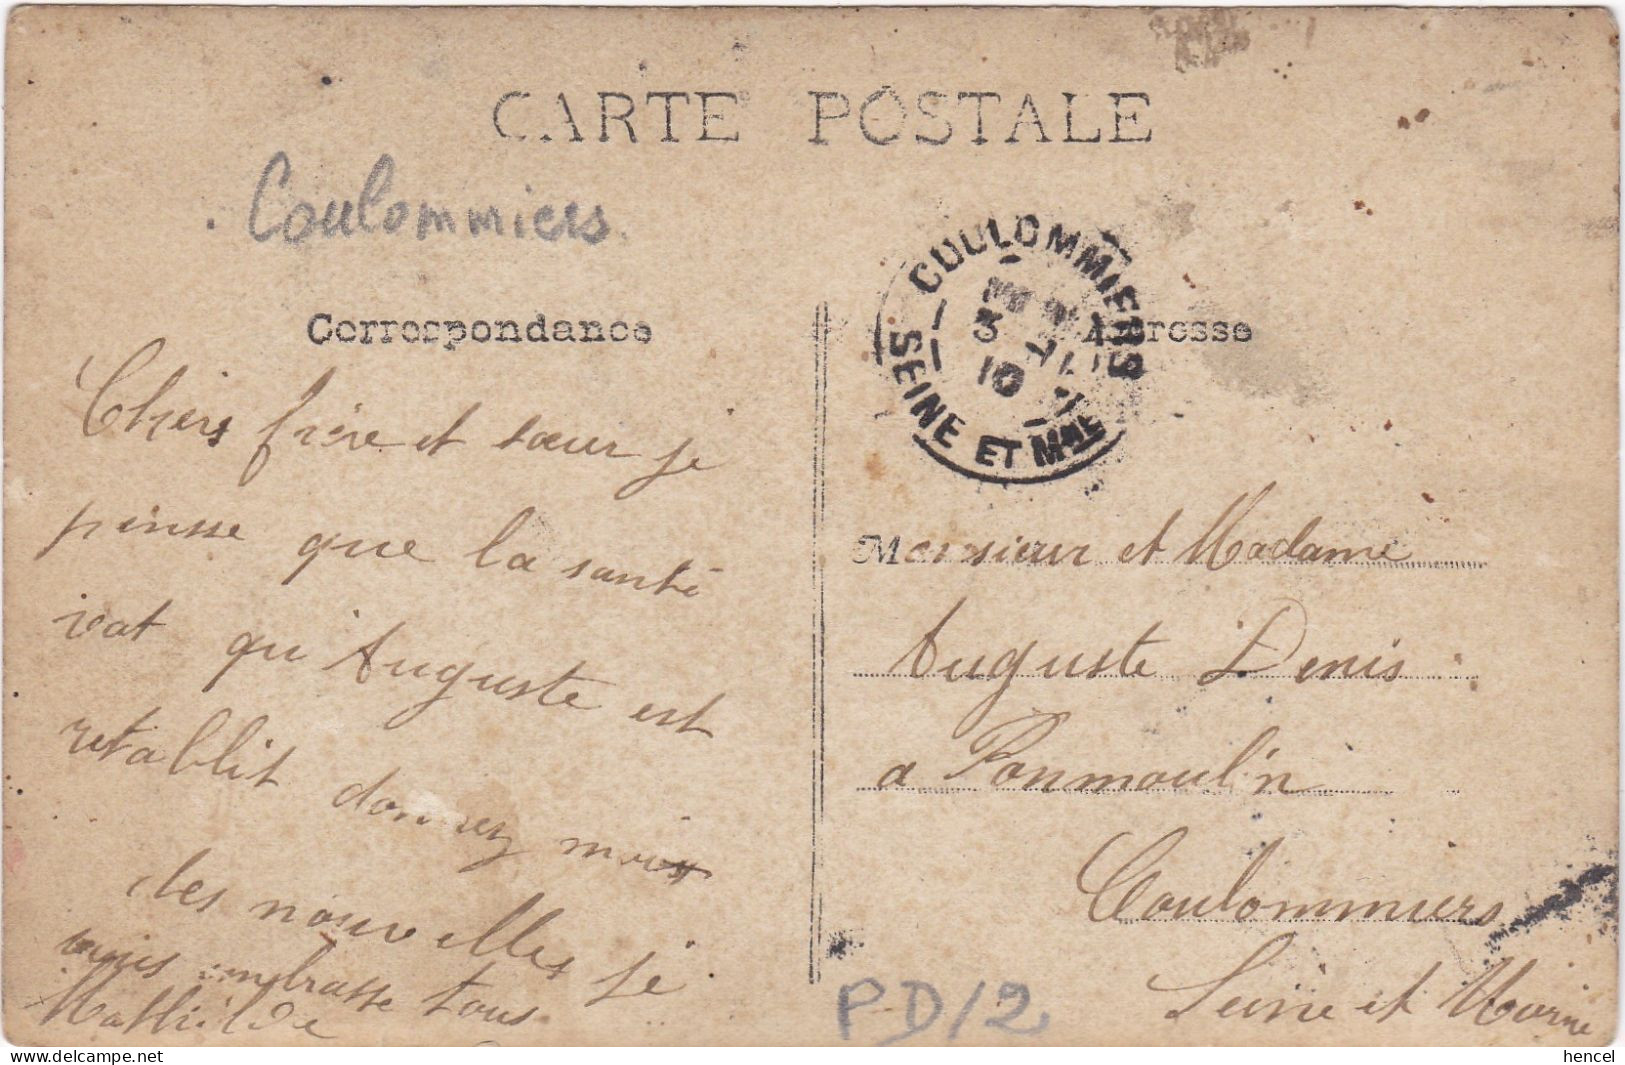 CARTE POSTALE
Coulommiers
Correspondance
Chers frère et sœur je
pensse que la santé
vat qu'Auguste est
retablit donnez moi
des nouvelles je
vous embrasse tous
Mathilde
COULOMMIERS
3
10
SEINE ET MNE
Adresse
Monsieur et Madame
Auguste Denis
a Ponmoulin
Coulommiers
Seine et Marne
PD/2
hencel
delcampe.net